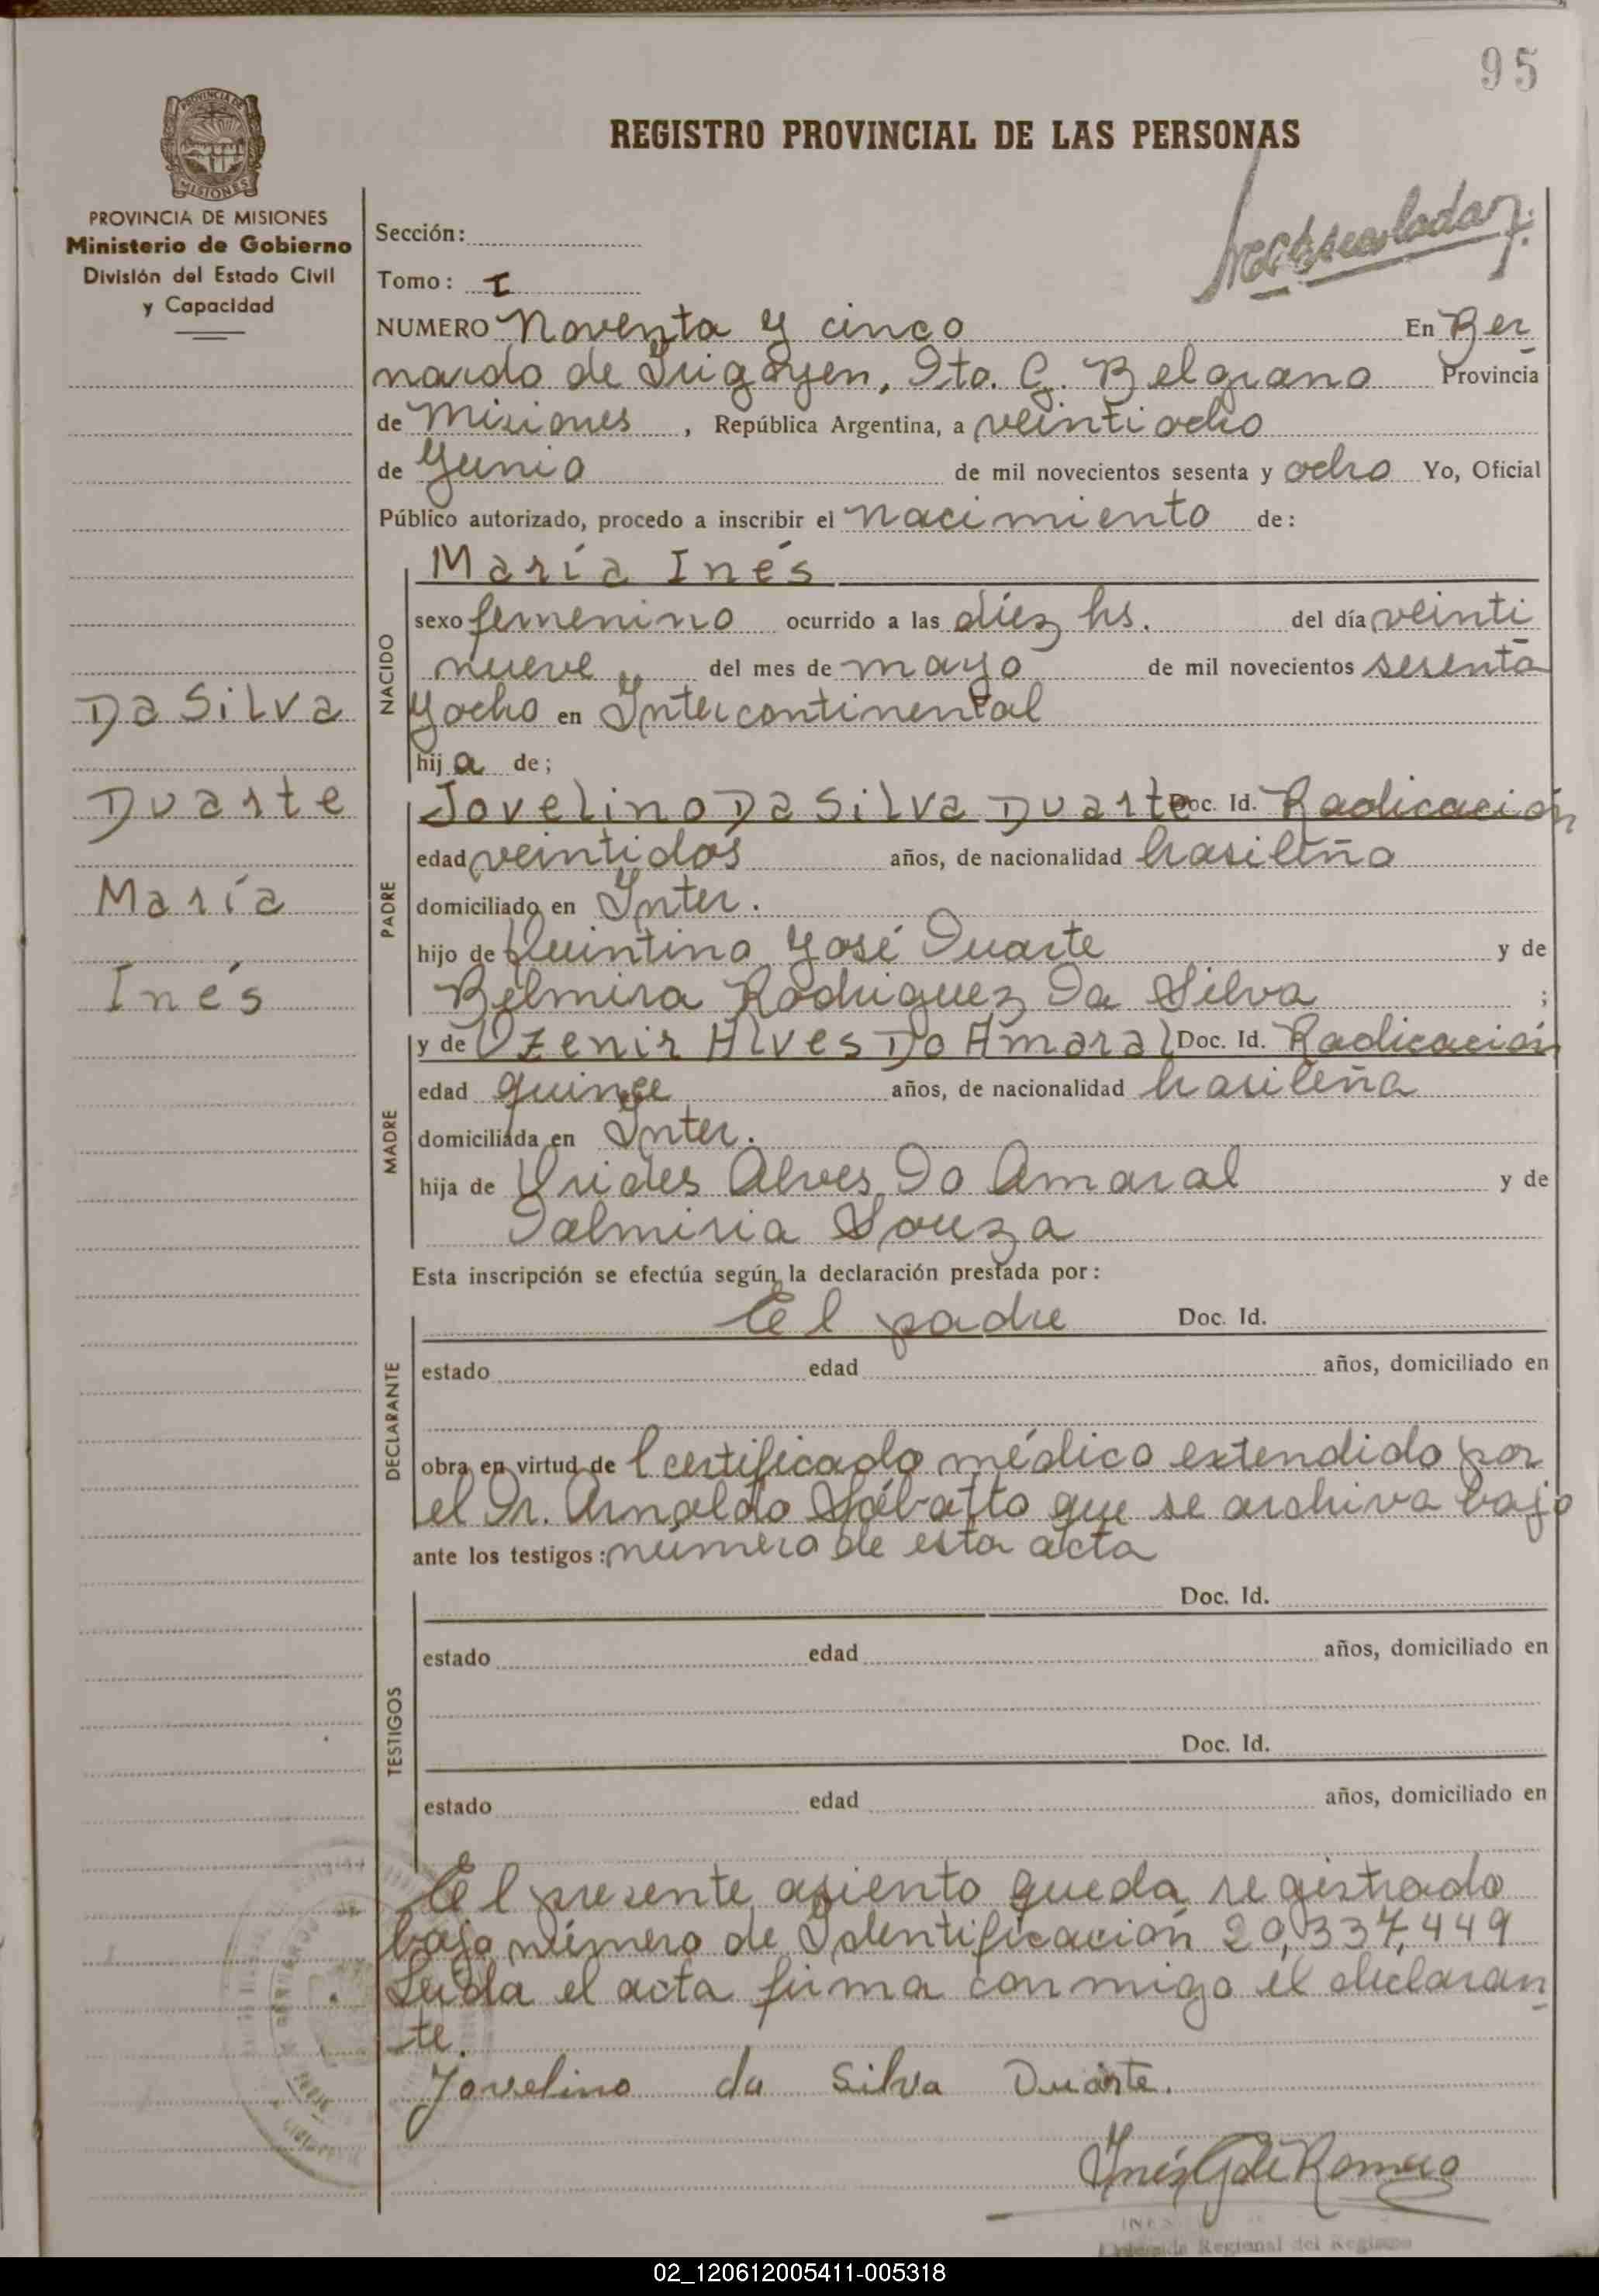 95
REGISTRO PROVINCIAL DE LAS PERSONAS
PROVINCIA DE
MISIONES
PROVINCIA DE MISIONES
Ministerio de Gobierno
División del Estado Civil
y Capacidad
Da Silva
Duarte
María
Inés
Sección:
Tomo: I
NUMERO Noventa y cinco En Ber
nardo de Irigoyen, Dto. G. Belgrano Provincia
de Misiones, República Argentina, a veintiocho
de Junio de mil novecientos sesenta y ocho Yo, Oficial
Público autorizado, procedo a inscribir el nacimiento de:
NACIDO
María Inés
sexo femenino ocurrido a las diez hs. del día veinti
nueve del mes de mayo de mil novecientos sesenta
y ocho en Intercontinental
hija de;
PADRE
Jovelino Da Silva Duarte Doc. Id. Radicación
edad veintidos años, de nacionalidad brasileño
domiciliado en Inter.
hijo de Quintino José Duarte y de
Belmira Rodriguez Da Silva ;
MADRE
y de Ozenir Alves Do Amaral Doc. Id. Radicación
edad quince años, de nacionalidad brasileña
domiciliada en Inter.
hija de Urides Alves Do Amaral y de
Dalmiria Souza
Esta inscripción se efectúa según la declaración prestada por:
DECLARANTE
El padre Doc. Id.
estado edad años, domiciliado en
obra en virtud de l certificado médico extendido por
el Dr. Arnaldo Sábatto que se archiva bajo
ante los testigos: número de esta acta
TESTIGOS
Doc. Id.
estado edad años, domiciliado en
Doc. Id.
estado edad años, domiciliado en
El presente asiento queda registrado
bajo número de Identificación 20,337,449
Leida el acta firma conmigo el declaran
te.
Jovelino da Silva Duarte.
Inés G de Romero
INES
Regional del Registro
02_120612005411-005318